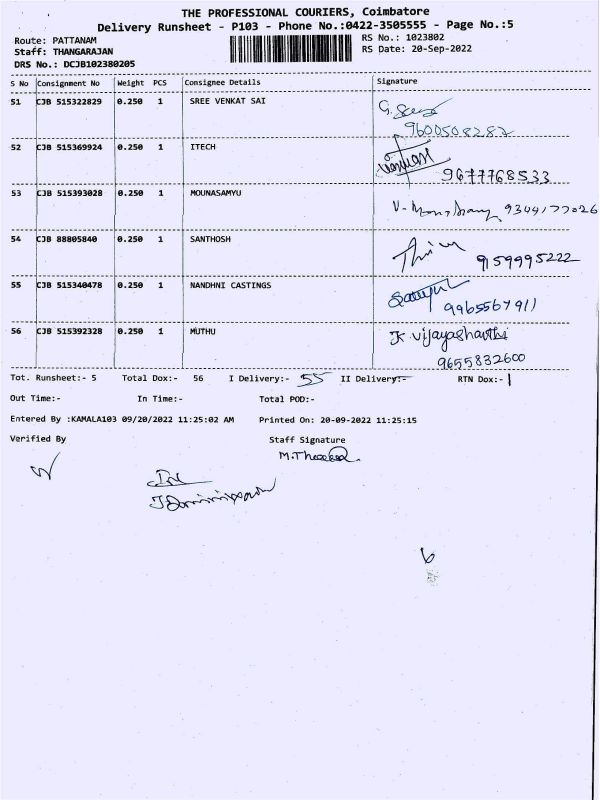 THE PROFESSIONAL COURIERS, Coimbatore
Delivery Runsheet - P103 - Phone No.:0422-3505555 - Page No.:5
Route: PATTANAM
RS No.: 1023802
Staff: THANGARAJAN
RS Date: 20-Sep-2022
DRS No.: DCJB102380205
S No Consignment No Weight PCS Consignee Details Signature
51 CJB 515322829 0.250 1 SREE VENKAT SAI
9600508287
52 CJB 515369924 0.250 1 ITECH
9677768533
53 CJB 515393028 0.250 1 MOUNASAMYU
9344177026
54 CJB 88805840 0.250 1 SANTHOSH
9159995222
55 CJB 515340478 0.250 1 NANDHNI CASTINGS
9965567911
56 CJB 515392328 0.250 1 MUTHU
K vijayashanthi
9655832600
Tot. Runsheet:- 5 Total Dox:- 56 I Delivery:- 55 II Delivery:- RTN Dox:- 1
Out Time:- In Time:- Total POD:-
Entered By :KAMALA103 09/20/2022 11:25:02 AM Printed On: 20-09-2022 11:25:15
Verified By Staff Signature